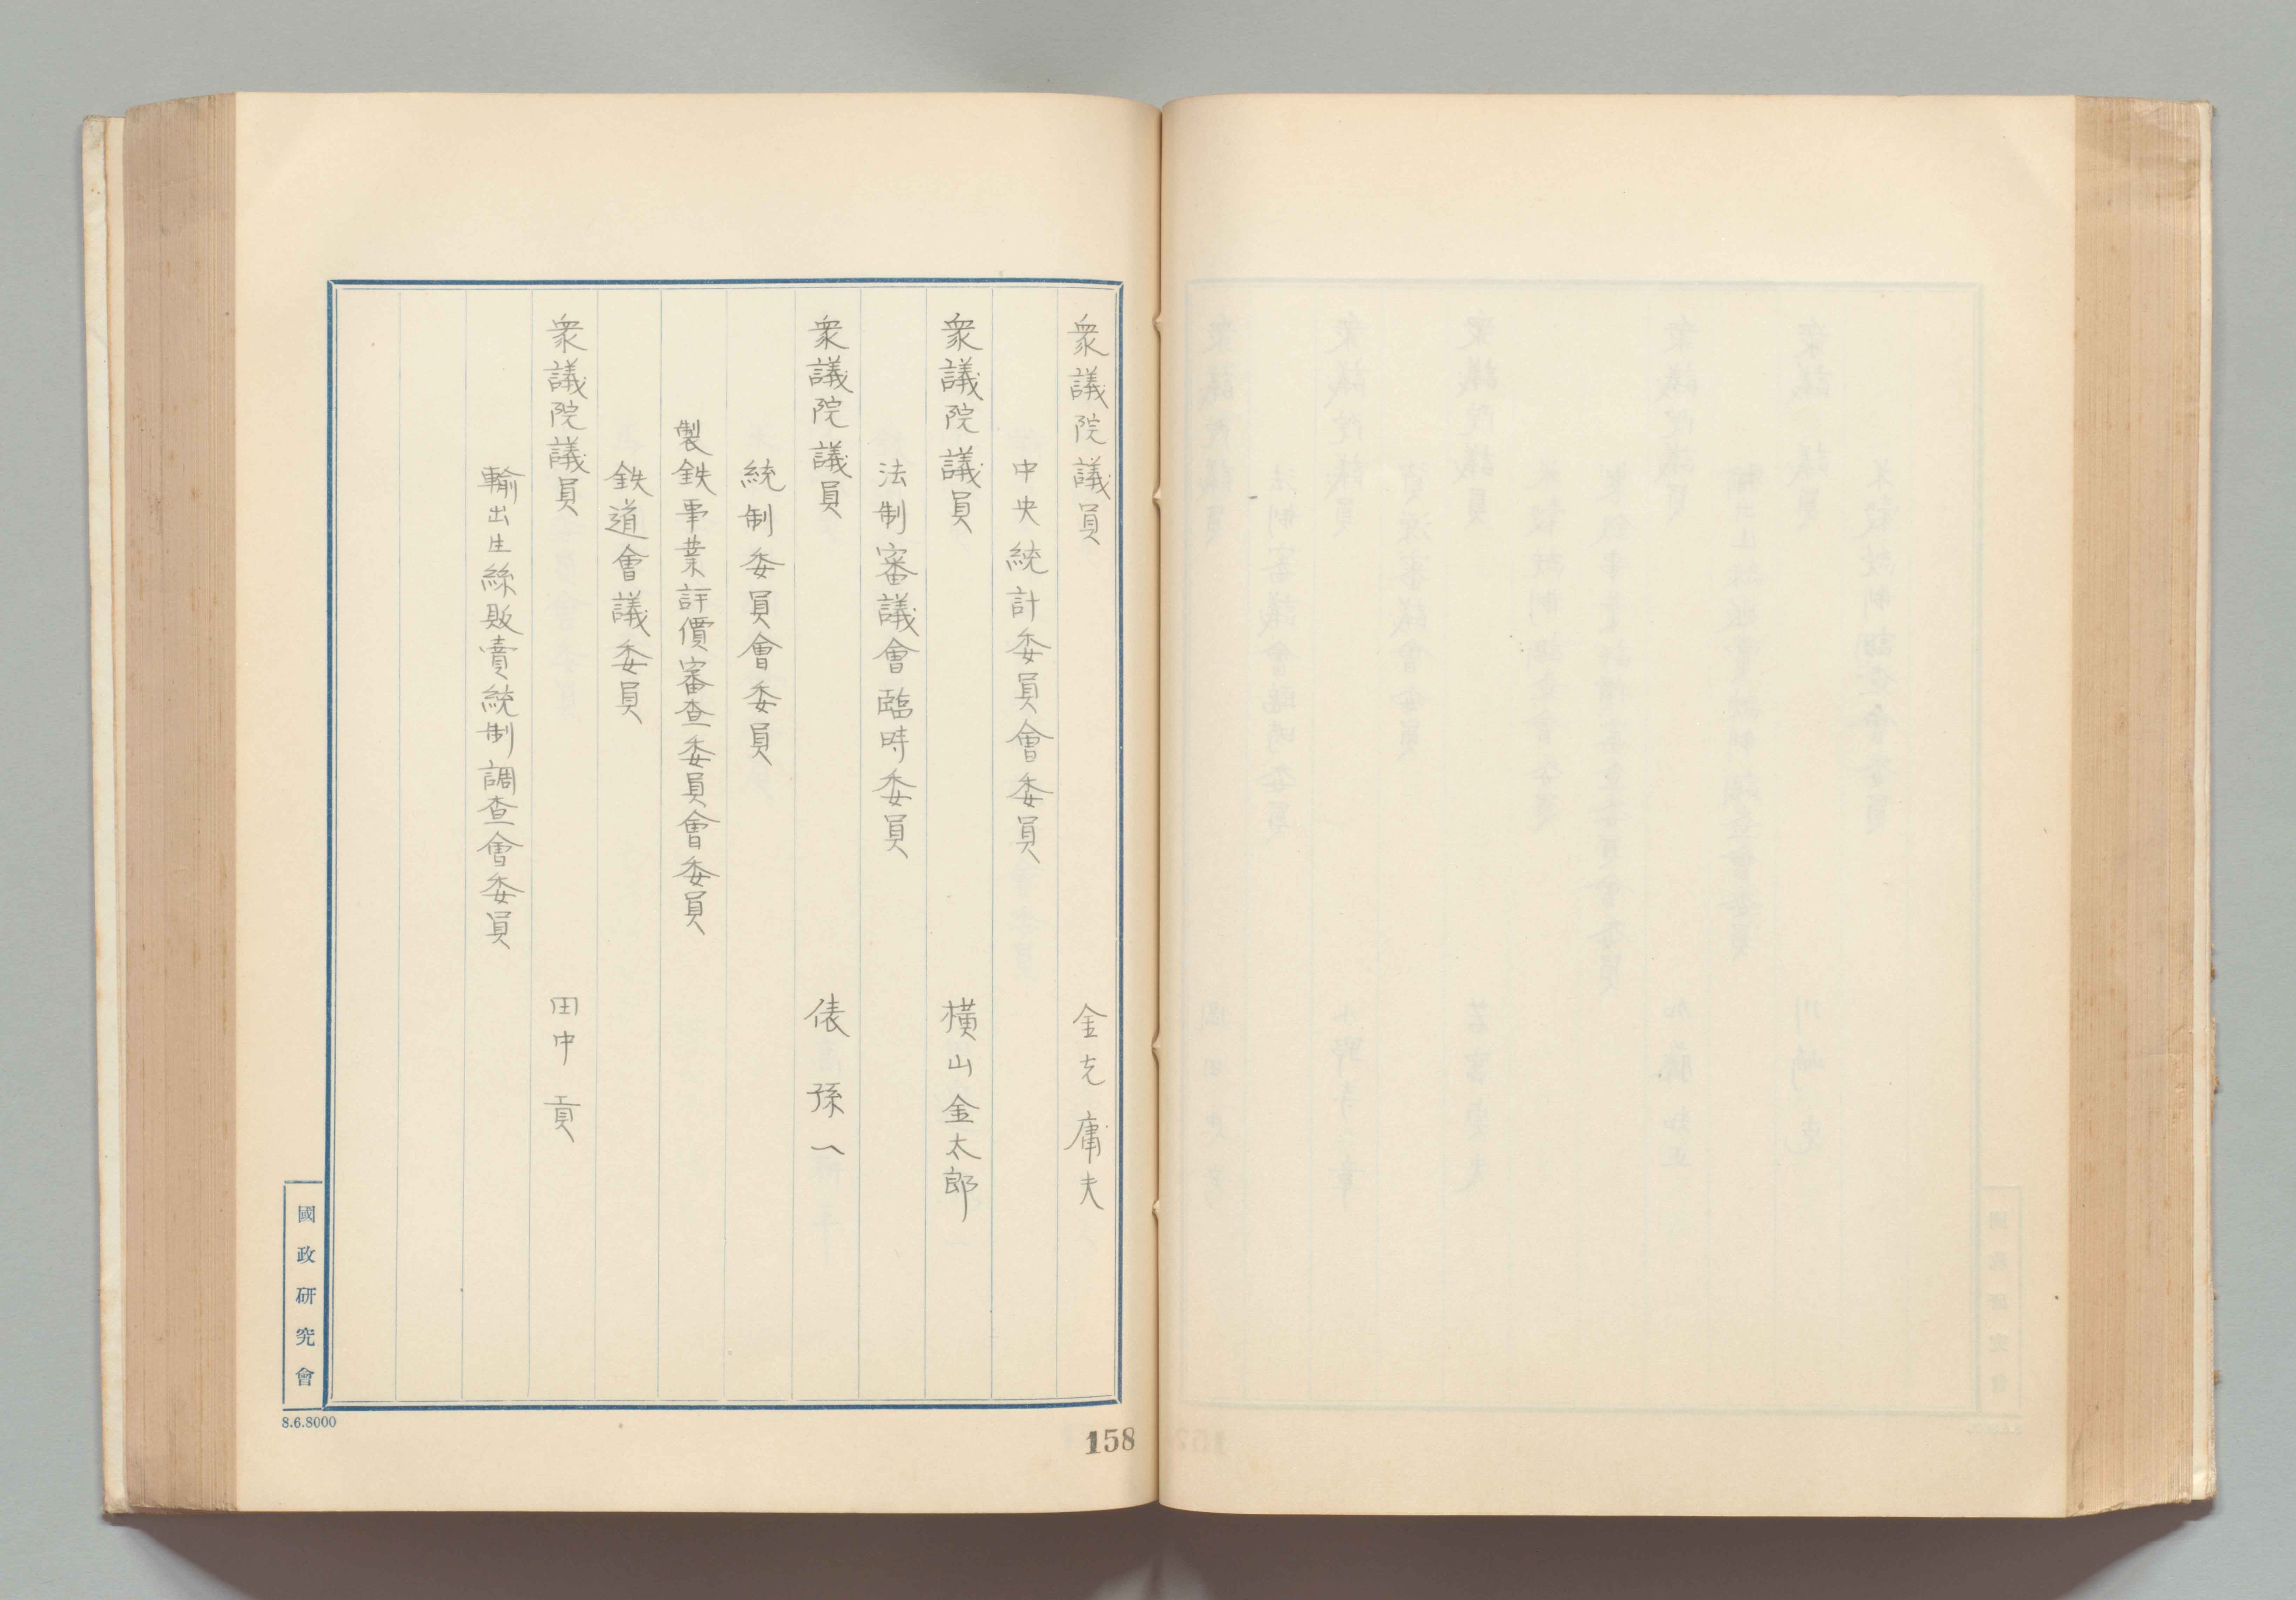 衆議院議員 金光庸夫
中央統計委員會委員
衆議院議員 横山金太郎
法制審議會臨時委員
衆議院議員 俵孫一
統制委員會委員
製鉄事業評價審查委員會委員
鉄道會議委員
衆議院議員 田中貢
輸出生絲販賣統制調查會委員
國政研究會
8.6.8000
158